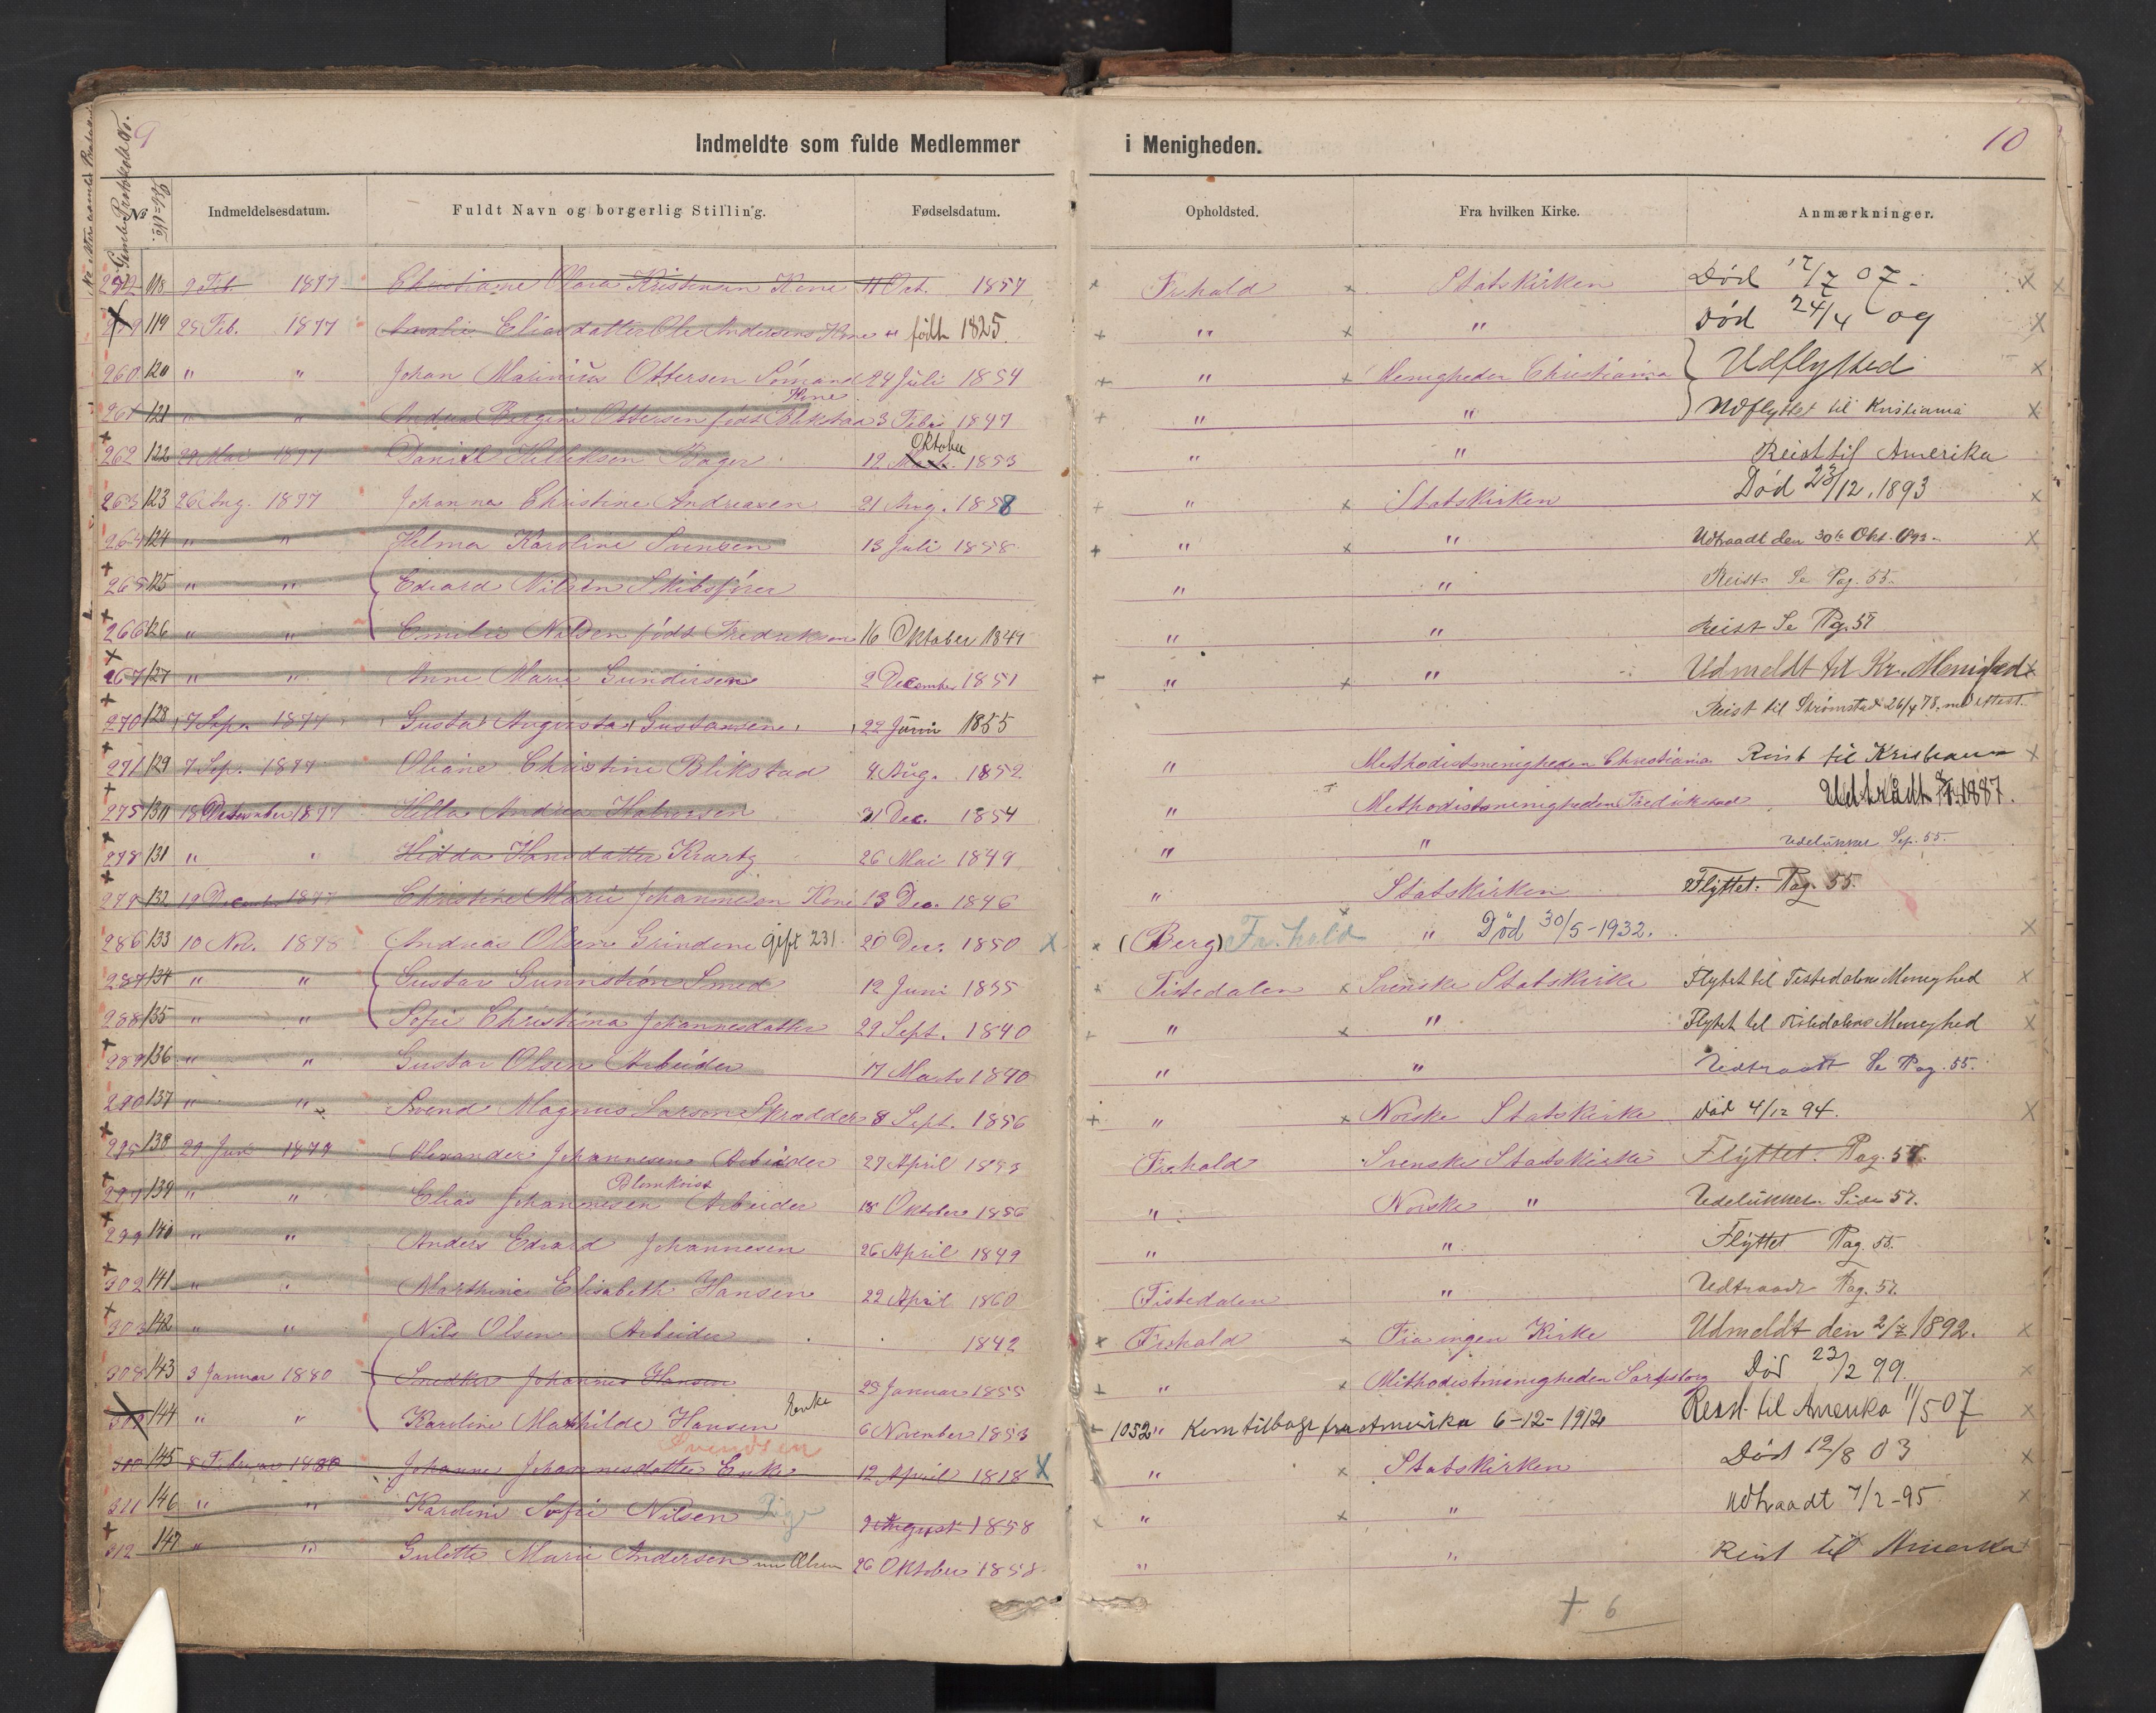 9
Indmeldte som fulde Medlemmer i Menigheden.
10
No Indmeldelsesdatum. Fuldt Navn og borgerlig Stilling. Fødselsdatum. Opholdsted. Fra hvilken Kirke. Anmærkninger.
118 9 Feb 1877 Christiane Olava Kristensen Kone 11 Oct. 1857 Frhald Statskirken Død 12/7 07.
119 25 Feb. 1877 Amalie Eliasdatter Ole Andersens Kone født 1825. " " Død 24/4 09
260 120 " " Johan Marinius Ottersen Sömand 24 Juli 1854 " Menigheden Christiania Udflytted
Kone
261 121 " " Andrea Bergine Ottersen født Blikstad 3 Feb 1847 " " Udflyttet til Kristiania
Oktober
262 122 29 Mai 1877 Daniel Hendriksen Bager 12 1853 " " Reist til Amerika
263 123 26 Aug. 1877 Johanna Christine Andreasen 21 Aug. 1858 " Statskirken Død 23/12. 1893
264 124 " " Helma Karoline Svensen 13 Juli 1858 " " Udtraadt den 30te Okt. 093
265 125 " " Edvard Nilsen Skibsfører " " Reist. Se Pag. 55.
266 126 " " Emilie Nilsen født Fredriksen 16 Oktober 1849 " " Reist Se Pag. 57
267 127 " " Anne Marie Gundersen 2 December 1851 " " Udmeldt til Kr. Menighed
270 128 7 Sep. 1877 Gustava Augusta Gustavsen 22 Juni 1855 Reist til Strømstad 26/4 78. med attest.
271 129 7 Sep. 1877 Oliane Christine Blikstad 4 Aug. 1852 " Methodistmenigheden Christiania Reist til Kristiania
275 130 18 December 1877 Hella Andrea Halvorsen 31 Dec. 1854 " Methodistmenigheden Fredrikstad Udtrådt 1887.
278 131 " " Hedda Hansdatter Krartz 26 Mai 1849 " " Udelukket Sep. 55.
279 132 19 December 1877 Christine Marie Johannesen Kone 13 Dec. 1846 " Statskirken Flyttet. Pag. 55.
286 133 10 Nov. 1878 Andreas Olsen Grindene gift 231. 20 Dec. 1850 (Berg) Fr.hald " Død 30/5-1932.
287 134 " " Gustav Gunnström Smed 12 Juni 1855 Tistedalen Svenske Statskirke Flytet til Tistedalens Menighed
288 135 " " Sofie Christina Johannesdatter 29 Sept. 1840 " " Flytet til Tistedalens Menighed
289 136 " " Gustav Olsen Arbeider 17 Marts 1840 " " Udtraadt Se Pag. 55.
290 137 " " Svend Magnus Larsen Skrædder 8 Sept. 1856 " Norske Statskirke Død 4/12 94.
295 138 29 Jun 1879 Alexander Johannesen Arbeider 27 April 1853 Frhald Svenske Statskirke Flyttet. Pag. 57.
Blomkvist
297 139 " " Elias Johannesen Arbeider 18 Oktober 1856 " Norske " Udelukket. Side 57.
299 140 " " Anders Edvard Johannesen 26 April 1849 " " Flyttet Pag. 55.
302 141 " " Marthine Elisabeth Hansen 22 April 1860 Tistedalen " Udtraadt Pag. 57.
303 142 " " Nils Olsen Arbeider 1842 Frhald Fra ingen Kirke Udmeldt den 2/7 1892.
308 143 3 Januar 1880 Snedker Johannes Hansen 25 Januar 1855 " Methodistmenigheden Sarpsborg Død 23/2 99.
144 " " Karoline Mathilde Hansen Enke 6 November 1853 1052 " Kom tilbage fra Amerika 6-12-1912 Reist til Amerika 11/5 07
Svendsen
310 145 8 Februar 1880 Johanne Johannesdatter Enke 12 April 1818 " Statskirken Død 12/8 03
311 146 " " Karoline Sofie Nilsen Pige 9 August 1858 " " Udtraadt 7/2-95
312 147 " " Gulette Marie Andersen nu Olsen 26 Oktober 1858 " " Reist til Amerika
+ 6